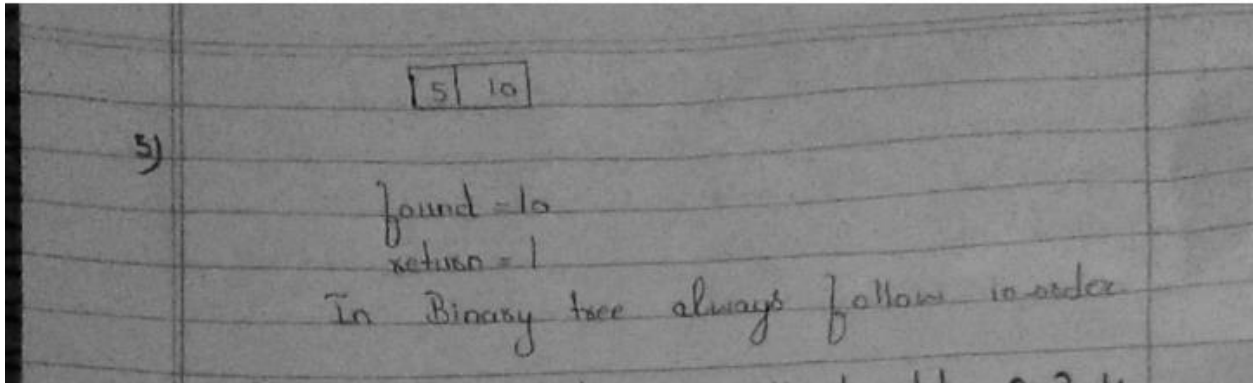 5 10
5)
found = 10
return = 1
In Binary tree always follow in-order